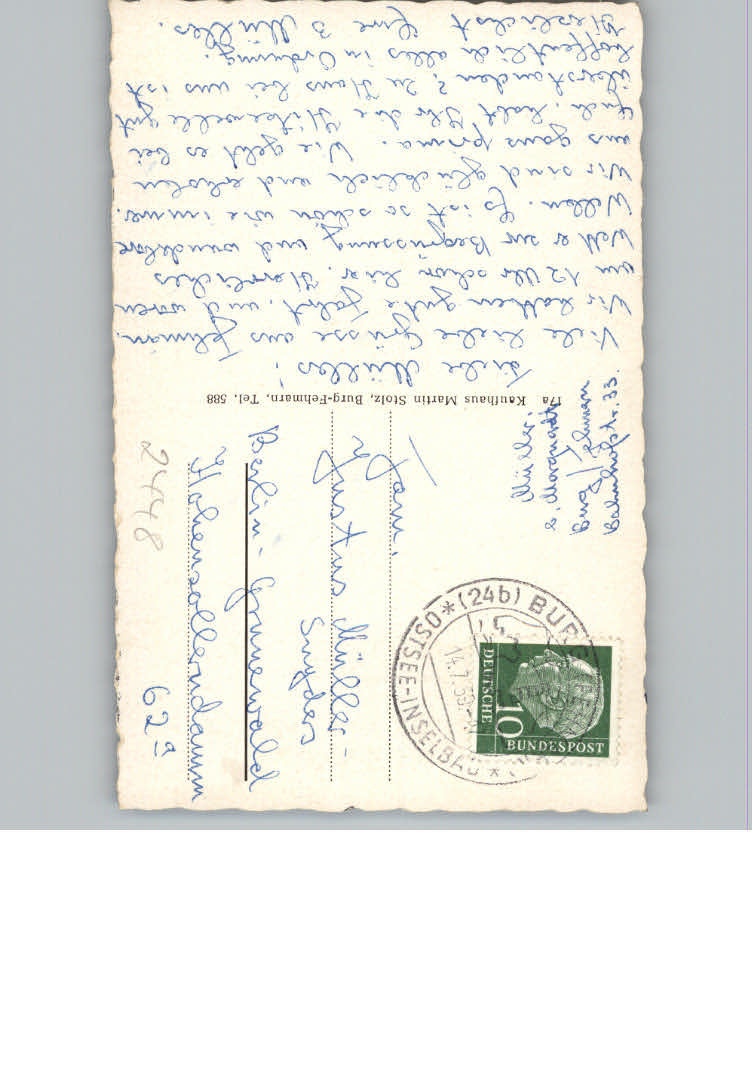 Liebe Müllers!
Viele liebe Grüsse aus Fehmarn.
Wir hatten gute Fahrt, und waren
um 12 Uhr schon hier. Herrliches
Wetter zur Begrüssung und wunderbare
Wellen. Es ist so schön wie immer.
Wir sind glücklich und erholen
uns ganz prima. Wie geht es bei
Euch, habt Ihr die Hitzewelle gut
überstanden? Zu Haus bei uns ist
hoffentlich alles in Ordnung.
Herzlichst Ihre 3 Müllers.
17a Kaufhaus Martin Stolz, Burg-Fehmarn, Tel. 588
Müller
b. Marquardt
Burg/Fehmarn
Bahnhofstr. 33.
Fam.
Justus Müller-
Berlin-Grunewald
Hohenzollerndamm
62a
2448
(24b) BURG
OSTSEE-INSELBAD
14.7.59
DEUTSCHE
BUNDESPOST
10